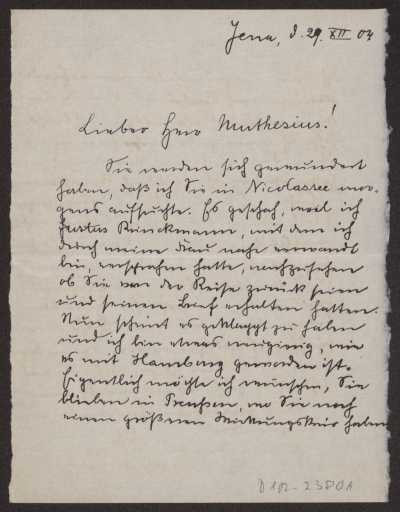 Jena, d. 29. XII 04
Lieber Herr Muthesius!
Sie werden sich gewundert
haben, daß ich Sie in Nicolassee mor-
gens aufsuchte. Es geschah, weil ich
Justus Brinckmann, mit dem ich
durch meine Frau nahe verwandt
bin, versprochen hatte, nachzusehen
ob Sie von der Reise zurück seien
und seinen Brief erhalten hatten.
Nun scheint es geklappt zu haben
und ich bin etwas neugierig, wie
es mit Hamburg geworden ist.
Eigentlich möchte ich wünschen, Sie
blieben in Preußen, wo Sie noch
einen größeren Wirkungskreis haben
D 102-23801